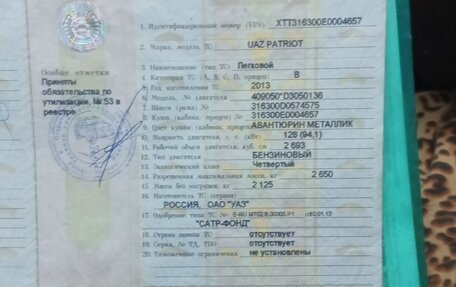 Особые отметки
Приняты
обязательства по
утилизации, № 53 в
реестре
1. Идентификационный номер (VIN) XTT316300E0004657
2. Марка, модель ТС UAZ PATRIOT
3. Наименование (тип ТС) Легковой
4. Категория ТС (A, B, C, D, прицеп) B
5. Год изготовления ТС 2013
6. Модель, № двигателя 409050*D3050136
7. Шасси (рама) № 316300D0574575
8. Кузов (кабина, прицеп) № 316300E0004657
9. Цвет кузова (кабины, прицепа) АВАНТЮРИН МЕТАЛЛИК
10. Мощность двигателя, л. с. (кВт) 128 (94.1)
11. Рабочий объем двигателя, куб. см 2 693
12. Тип двигателя БЕНЗИНОВЫЙ
13. Экологический класс Четвертый
14. Разрешенная максимальная масса, кг 2 650
15. Масса без нагрузки, кг 2 125
16. Изготовитель ТС (страна)
РОССИЯ, ОАО "УАЗ"
17. Одобрение типа ТС № E-RU.MT02.B.00305.P1
"САТР-ФОНД"
18. Страна вывоза ТС отсутствует
19. Серия, № ТД, ТПО отсутствует
20. Таможенные ограничения не установлены